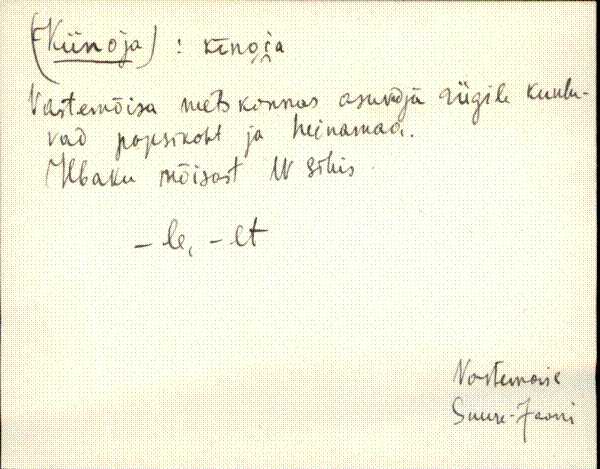 (Kiinoja) : kīnoi̯a
Vastemõisa metskonnas asuvad riigile kuulu-
vad popsikoht ja heinamaa.
Ilbaku mõisast W sihis.
– le, – lt
Vastemõisa
Suure-Jaani